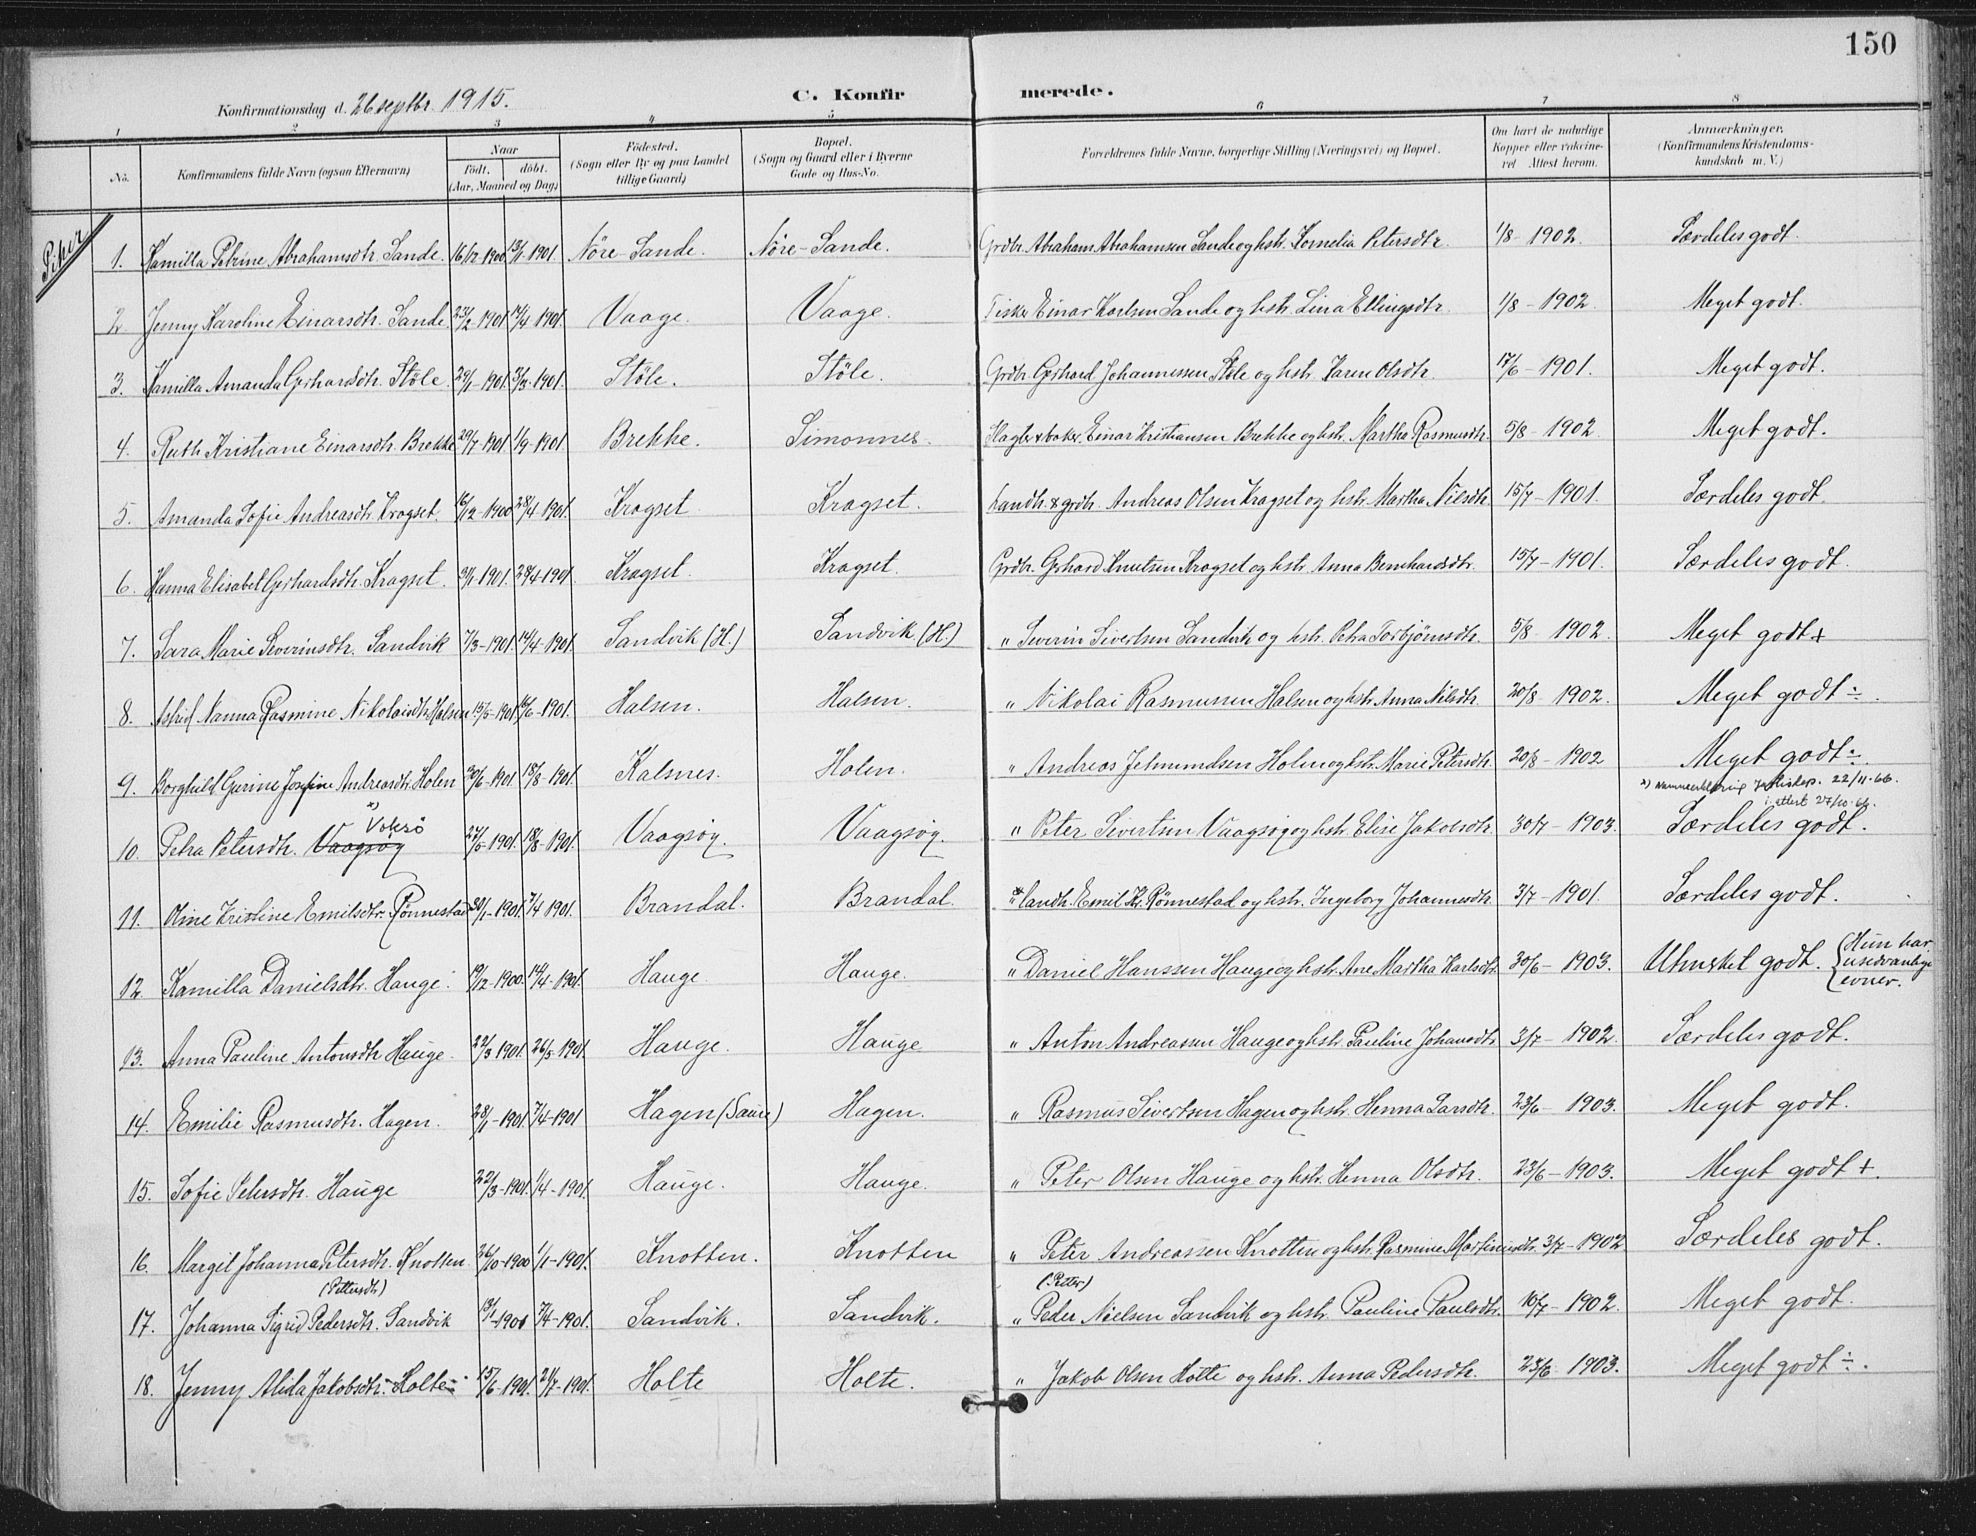 150
Konfirmationsdag d. 26 septbr. 1915.
C. Konfirmerede.
1 2 3 4 5 6 7 8
No.
Konfirmandens fulde Navn (ogsaa Efternavn)
Naar
födt. döbt.
(Aar, Maaned og Dag)
Födested.
(Sogn eller By og paa Landet
tillige Gaard)
Bopæl.
(Sogn og Gaard eller i Byerne
Gade og Hus-No.
Forældrenes fulde Navne, borgerlige Stilling (Næringsvei) og Bopæl.
Om havt de naturlige
Kopper eller vakcine-
ret Attest herom.
Anmærkninger.
(Konfirmandens Kristendoms-
kundskab m. V.)
Piker
1. Kamilla Petrine Abrahamsdtr. Sande. 16/12 1900 13/1 1901. Nöre-Sande. Nöre-Sande. Grdbr. Abraham Abrahamsen Sande og hstr. Kornelia Petersdtr. 1/8 - 1902. Særdeles godt.
2. Jenny Karoline Einarsdtr. Sande 23/2 1901 14/4 1901. Vaage. Vaage. Fisker Einar Karlsen Sande og hstr. Lina Ellingsdtr. 1/8 - 1902. Meget godt.
3. Kamilla Amanda Gerhardsdtr. Stöle. 29/1 1901. 3/3 1901. Stöle. Stöle. Grdbr. Gerhard Johannessen Stöle og hstr. Karen Olsdtr. 17/6 - 1901. Meget godt.
4. Ruth Kristiane Einarsdtr. Brekke 29/7 1901. 1/9 1901. Brekke. Simonnes. Slagter & baker Einar Kristiansen Brekke og hstr. Martha Rasmusdtr. 5/8 - 1902. Meget godt.
5. Amanda Sofie Andreasdtr. Kragset. 16/12 1900 28/4 1901. Kragset. Kragset. Landh. & grdbr. Andreas Olsen Kragset og hstr. Martha Nilsdtr. 15/7 - 1901. Særdeles godt.
6. Hanna Elisabet Gerhardsdtr. Kragset. 31/1 1901. 28/4 1901. Kragset. Kragset. Grdbr. Gerhard Knutsen Kragset og hstr. Anna Bernhardsdtr. 15/7 - 1901. Særdeles godt.
7. Sara Marie Severinsdtr. Sandvik 7/3 - 1901. 14/4 1901. Sandvik (H.) Sandvik (H.) " Severin Sivertsen Sandvik og hstr. Petra Torbjörnsdtr. 5/8 - 1902. Meget godt +
8. Astrid Nanna Rasmine Nikolaidtr. Halsen 15/5 - 1901 16/6 - 1901. Halsen. Halsen. " Nikolai Rasmussen Halsen og hstr. Anna Nilsdtr. 20/8 - 1902. Meget godt ÷.
9. Borghild Gurine Josefine Andreasdtr. Holen 20/6 - 1901 18/8 - 1901. Kalsnes. Holen. " Andreas Jetmundsen Holen og hstr. Marie Petersdtr. 20/8 - 1902 Meget godt ÷.
x) Navneendring 22/11-66.
i attest 27/10-66.
x) Voksö
10. Petra Petersdtr. Vaagsøy 27/5 - 1901. 18/8 - 1901. Vaagsøy. Vaagsøy. " Peter Sivertsen Vaagsøy og hstr. Elise Jakobsdtr. 30/7 - 1903. Særdeles godt.
11. Oline Kristine Emilsdtr. Rønnestad 20/1 - 1901. 7/4 1901. Brandal. Brandal. " & landh. Emil Kr. Rønnestad og hstr. Ingeborg Johannesdtr. 3/7 - 1901. Særdeles godt.
12. Kamilla Danielsdtr. Hauge. 19/12 - 1900. 14/4 - 1901. Hauge Hauge. " Daniel Hanssen Hauge og hstr. Ane Martha Karlsdtr. 30/6 - 1903. Utmerket godt. {Hun har usedvanlige evner.
13. Anna Pauline Antonsdtr. Hauge. 22/3 1901. 26/5 1901. Hauge. Hauge " Anton Andreassen Hauge og hstr. Pauline Johansdtr. 3/7 - 1902. Særdeles godt.
14. Emilie Rasmusdtr. Hagen. 28/1 - 1901 7/4 - 1901 Hagen (Saure) Hagen. " Rasmus Sivertsen Hagen og hstr. Henna Larsdtr. 23/6 - 1903. Meget godt.
15. Sofie Petersdtr. Hauge 22/3 - 1901. 1/4 - 1901. Hauge. Hauge. " Peter Olsen Hauge og hstr. Henna Olsdtr. 23/6 - 1903. Meget godt +.
16. Margit Johanna Petersdtr. Knotten 26/10 - 1900 1/1 - 1901. Knotten. Knotten " Peter Andreassen Knotten og hstr. Rasmine Martinusdtr. 3/7 - 1902 Særdeles godt.
(Pettersdtr) (Petter)
17. Johanna Sigrid Pedersdtr. Sandvik 13/1 - 1901 7/4 - 1901. Sandvik. Sandvik. " Peder Nielsen Sandvik og hstr. Pauline Paulsdtr. 10/7 - 1902. Meget godt.
18. Jenny Alida Jakobsdtr. Holte 15/6 - 1901. 21/7 - 1901. Holte Holte. " Jakob Olsen Holte og hstr. Anna Pedersdtr. 23/6 1903. Meget godt ÷.